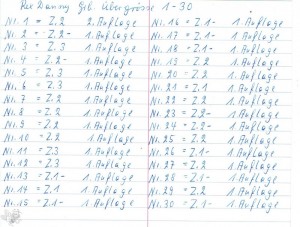 Rex Danny Gib. Übergrösse 1-30
Nr. 1 = Z.2 2. Auflage
Nr. 2 = Z.2- 1. Auflage
Nr. 3 = Z.3 1. Auflage
Nr. 4 = Z.2- 1. Auflage
Nr. 5 = Z.3 1. Auflage
Nr. 6 = Z.3 1. Auflage
Nr. 7 = Z.2 1. Auflage
Nr. 8 = Z.2 1. Auflage
Nr. 9 = Z.2 1. Auflage
Nr. 10 = Z.2 1. Auflage
Nr. 11 = Z.3 1. Auflage
Nr. 12 = Z.3 1. Auflage
Nr. 13 = Z.1- 1. Auflage
Nr. 14 = Z.1- 1. Auflage
Nr. 15 = Z.1- 1. Auflage
Nr. 16 = Z.1- 1. Auflage
Nr. 17 = Z.1- 1. Auflage
Nr. 18 = Z.1- 1. Auflage
Nr. 19 = Z.2 1. Auflage
Nr. 20 = Z.2 1. Auflage
Nr. 21 = Z.1 1. Auflage
Nr. 22 = Z.2 1. Auflage
Nr. 23 = Z.2- 1. Auflage
Nr. 24 = Z.2- 1. Auflage
Nr. 25 = Z.2 1. Auflage
Nr. 26 = Z.1- 1. Auflage
Nr. 27 = Z.2 1. Auflage
Nr. 28 = Z.1- 1. Auflage
Nr. 29 = Z.2 1. Auflage
Nr. 30 = Z.1- 1. Auflage